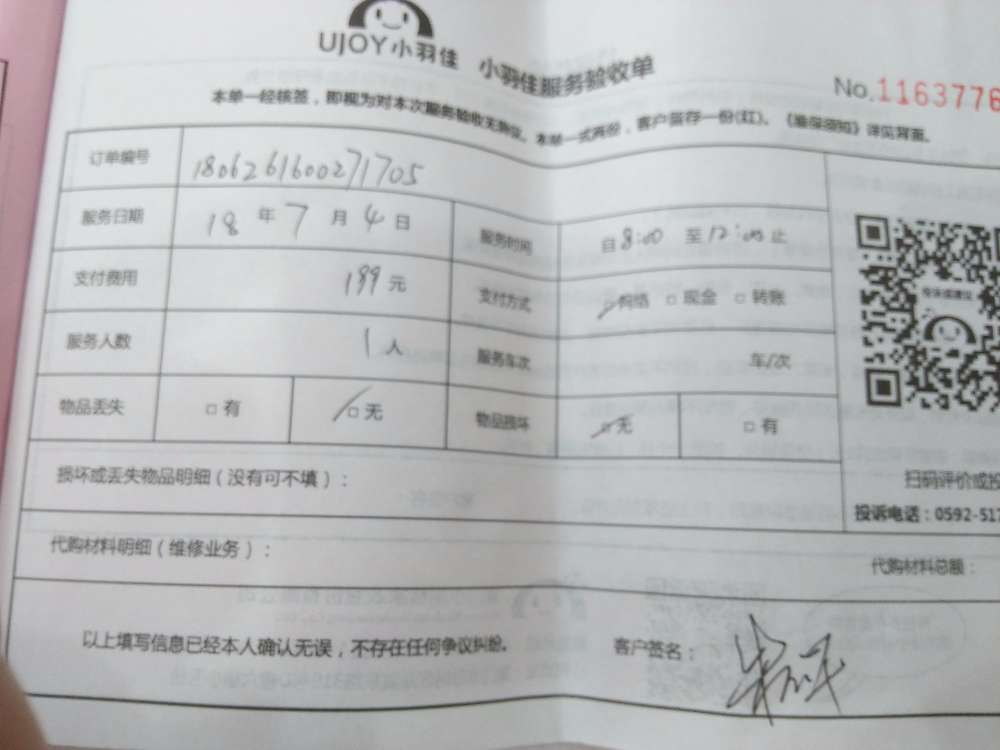 UJOY小羽佳 小羽佳服务验收单
No.1163776
本单一经核签，即视为对本次服务验收无异议。本单一式两份，客户留存一份(红)。《维保须知》详见背面。
订单编号 180626160027 1705
服务日期 18 年 7 月 4 日 服务时间 自 8:00 至 12:00 止
支付费用 199 元 支付方式 □ 网络 □ 现金 □ 转账
服务人数 1 人 服务车次 车/次
物品丢失 □ 有 □ 无 物品损坏 □ 无 □ 有
损坏或丢失物品明细（没有可不填）：
扫码评价或投
投诉电话：0592-517
代购材料明细（维修业务）：
代购材料总额：
以上填写信息已经本人确认无误，不存在任何争议纠纷。 客户签名：